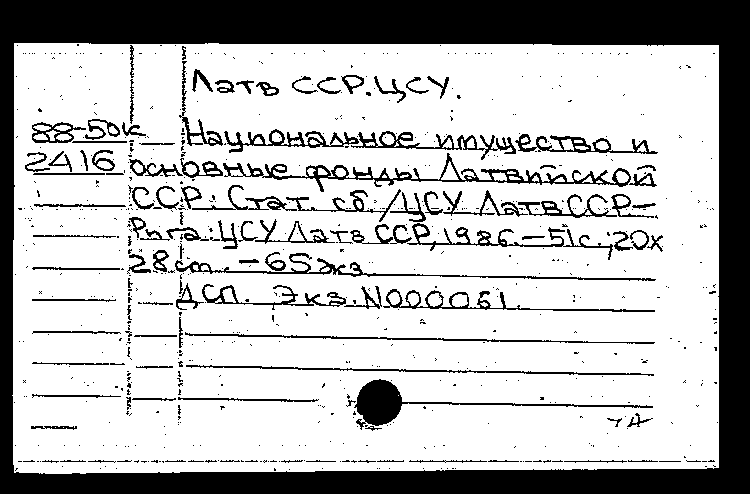 Латв ССР. ЦСУ.
88-50к Национальное имущество и
2416 основные фонды Латвийской
ССР: Стат. сб. / ЦСУ Латв ССР-
Рига: ЦСУ Латв ССР, 1986.-51с.; 20х
28 см. - 65 экз.
ДСП. Экз. N000061.